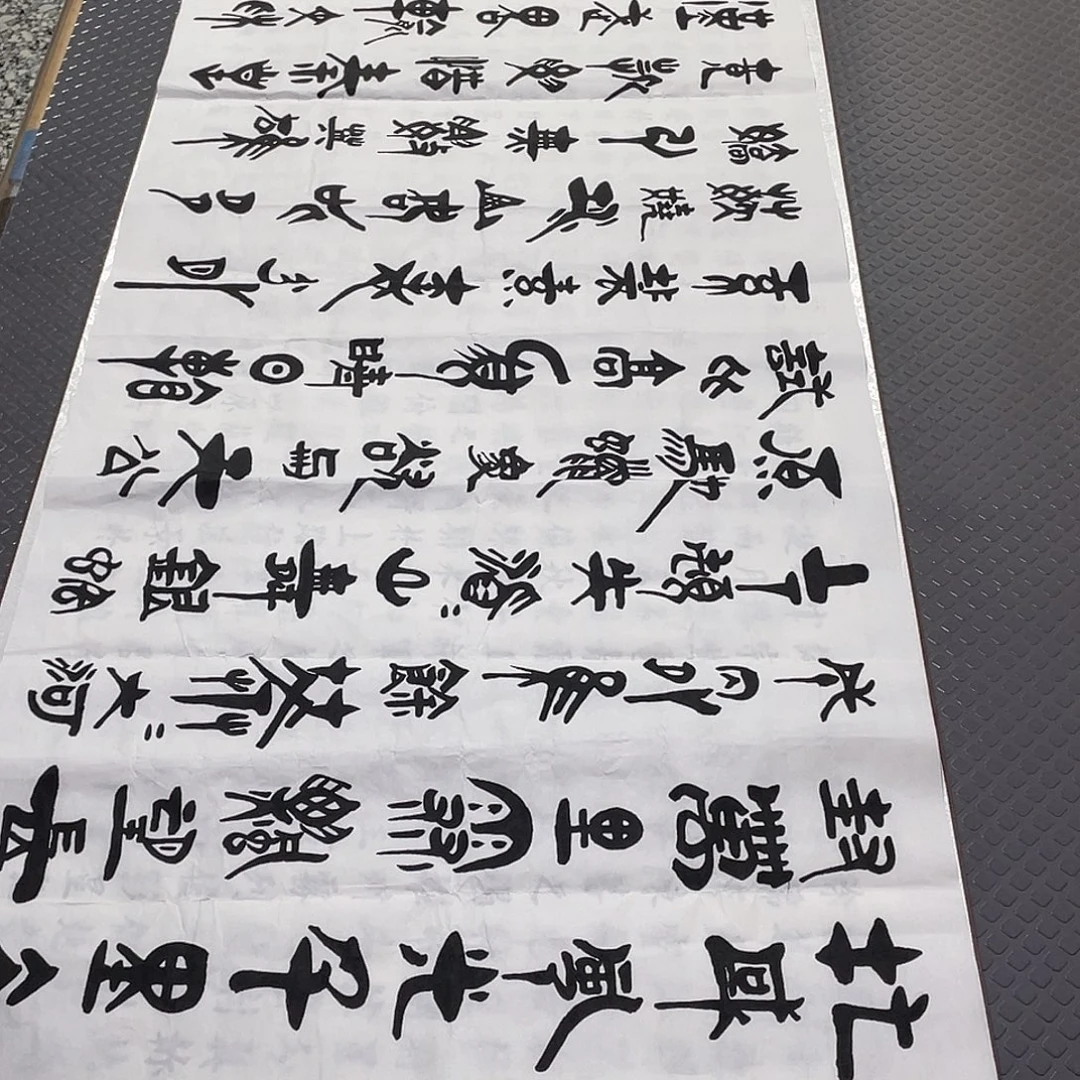 北國風光千里
封萬里雪飄望長
城內外惟餘莽〻大河
上下頓失滔〻山舞銀蛇
原馳蠟象欲與天公
試比高須晴日看
紅裝素裹分外
嬈江山如此多
嬌引無數英雄
競折腰惜秦皇
漢武略輸文采